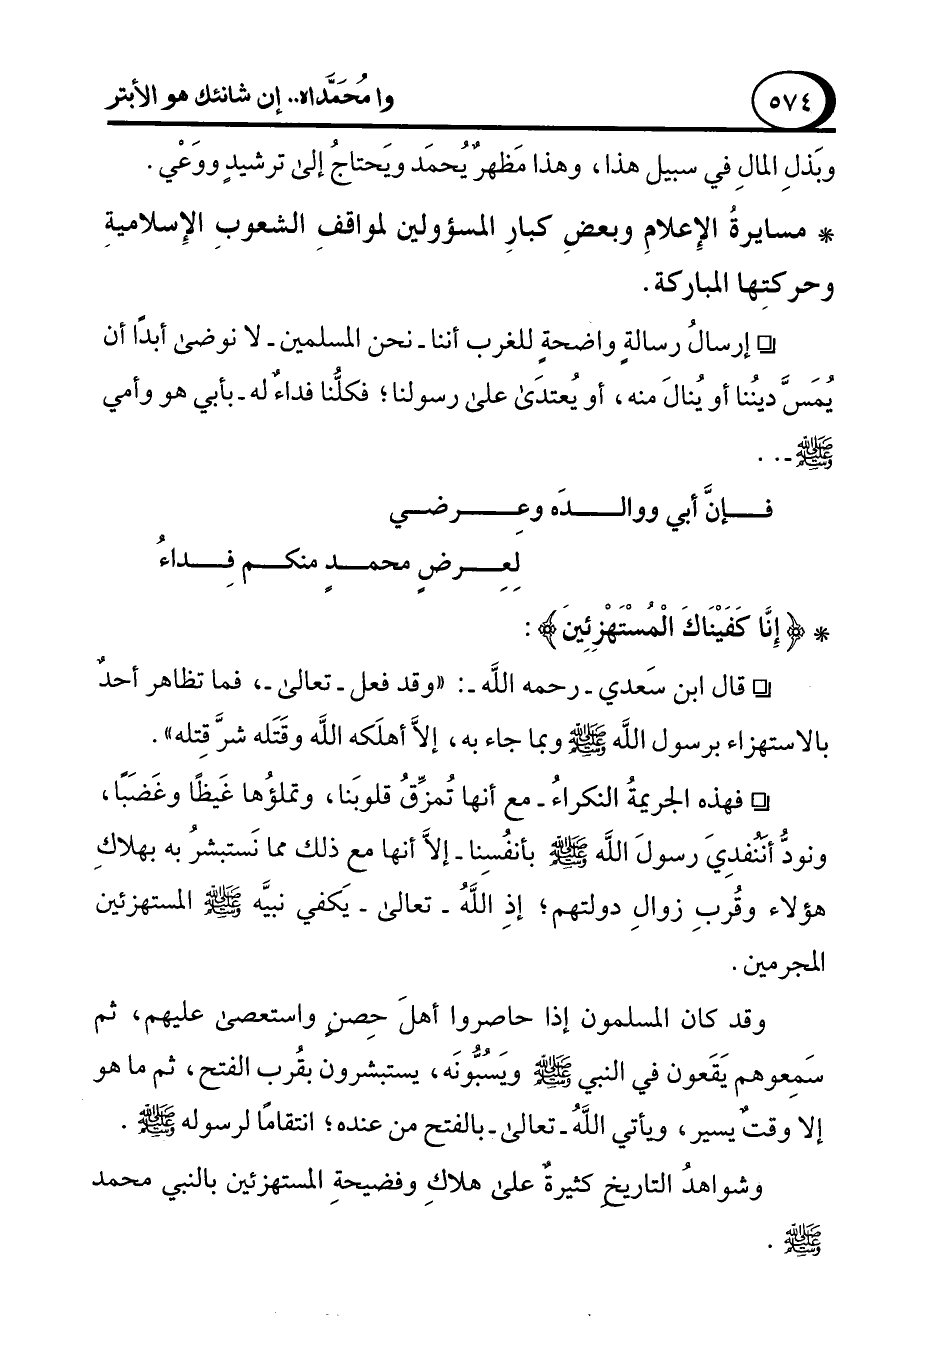 ٥٧٤
وا مُحَمَّداه.. إن شانئك هو الأبتر
وبَذلِ المالِ في سبيل هذا، وهذا مَظهرٌ يُحمَد ويَحتاجُ إلىٰ ترشيدٍ ووَعْيٍ.
* مسايرةُ الإعلامِ وبعضِ كبارِ المسؤولين لمواقفِ الشعوبِ الإسلاميةِ
وحركتِها المباركة.
❏ إرسالُ رسالةٍ واضحةٍ للغرب أننا ـ نحن المسلمين ـ لا نوضىٰ أبدًا أن
يُمَسَّ ديننا أو يُنالَ منه، أو يُعتدَىٰ علىٰ رسولنا؛ فكلُّنا فداءٌ له ـ بأبي هو وأمي
ﷺ ـ . .
فــإنَّ أبي ووالـــدَه وعِــــرضــي
لِعِــرضِ محمــدٍ منكــم فِــداءُ
* ﴿إِنَّا كَفَيْنَاكَ الْمُسْتَهْزِئِينَ﴾:
❏ قال ابن سَعدي ـ رحمه اللَّه ـ: «وقد فعل ـ تعالىٰ ـ، فما تظاهر أحدٌ
بالاستهزاء برسول اللَّه ﷺ وبما جاء به، إلاَّ أهلَكه اللَّه وقَتَله شرَّ قتله».
❏ فهذه الجريمةُ النكراءُ ـ مع أنها تُمزِّقُ قلوبَنا، وتملؤُها غَيظًا وغَضَبًا،
ونودُّ أَنْنُفديَ رسولَ اللَّه ﷺ بأنفُسِنا ـ إلاَّ أنها مع ذلك مما نَستبشرُ به بهلاكِ
هؤلاء وقُربِ زوالِ دولتهم؛ إذِ اللَّهُ ـ تعالىٰ ـ يَكفي نبيَّه ﷺ المستهزئين
المجرمين.
وقد كان المسلمون إذا حاصروا أهلَ حِصنٍ واستعصىٰ عليهم، ثم
سَمِعوهم يَقَعون في النبي ﷺ ويَسُبُّونَه، يستبشرون بقُرب الفتح، ثم ما هو
إلا وقتٌ يسير، ويأتي اللَّهُ ـ تعالىٰ ـ بالفتح من عنده؛ انتقامًا لرسوله ﷺ .
وشواهدُ التاريخِ كثيرةٌ علىٰ هلاكِ وفضيحةِ المستهزئين بالنبي محمد
ﷺ .